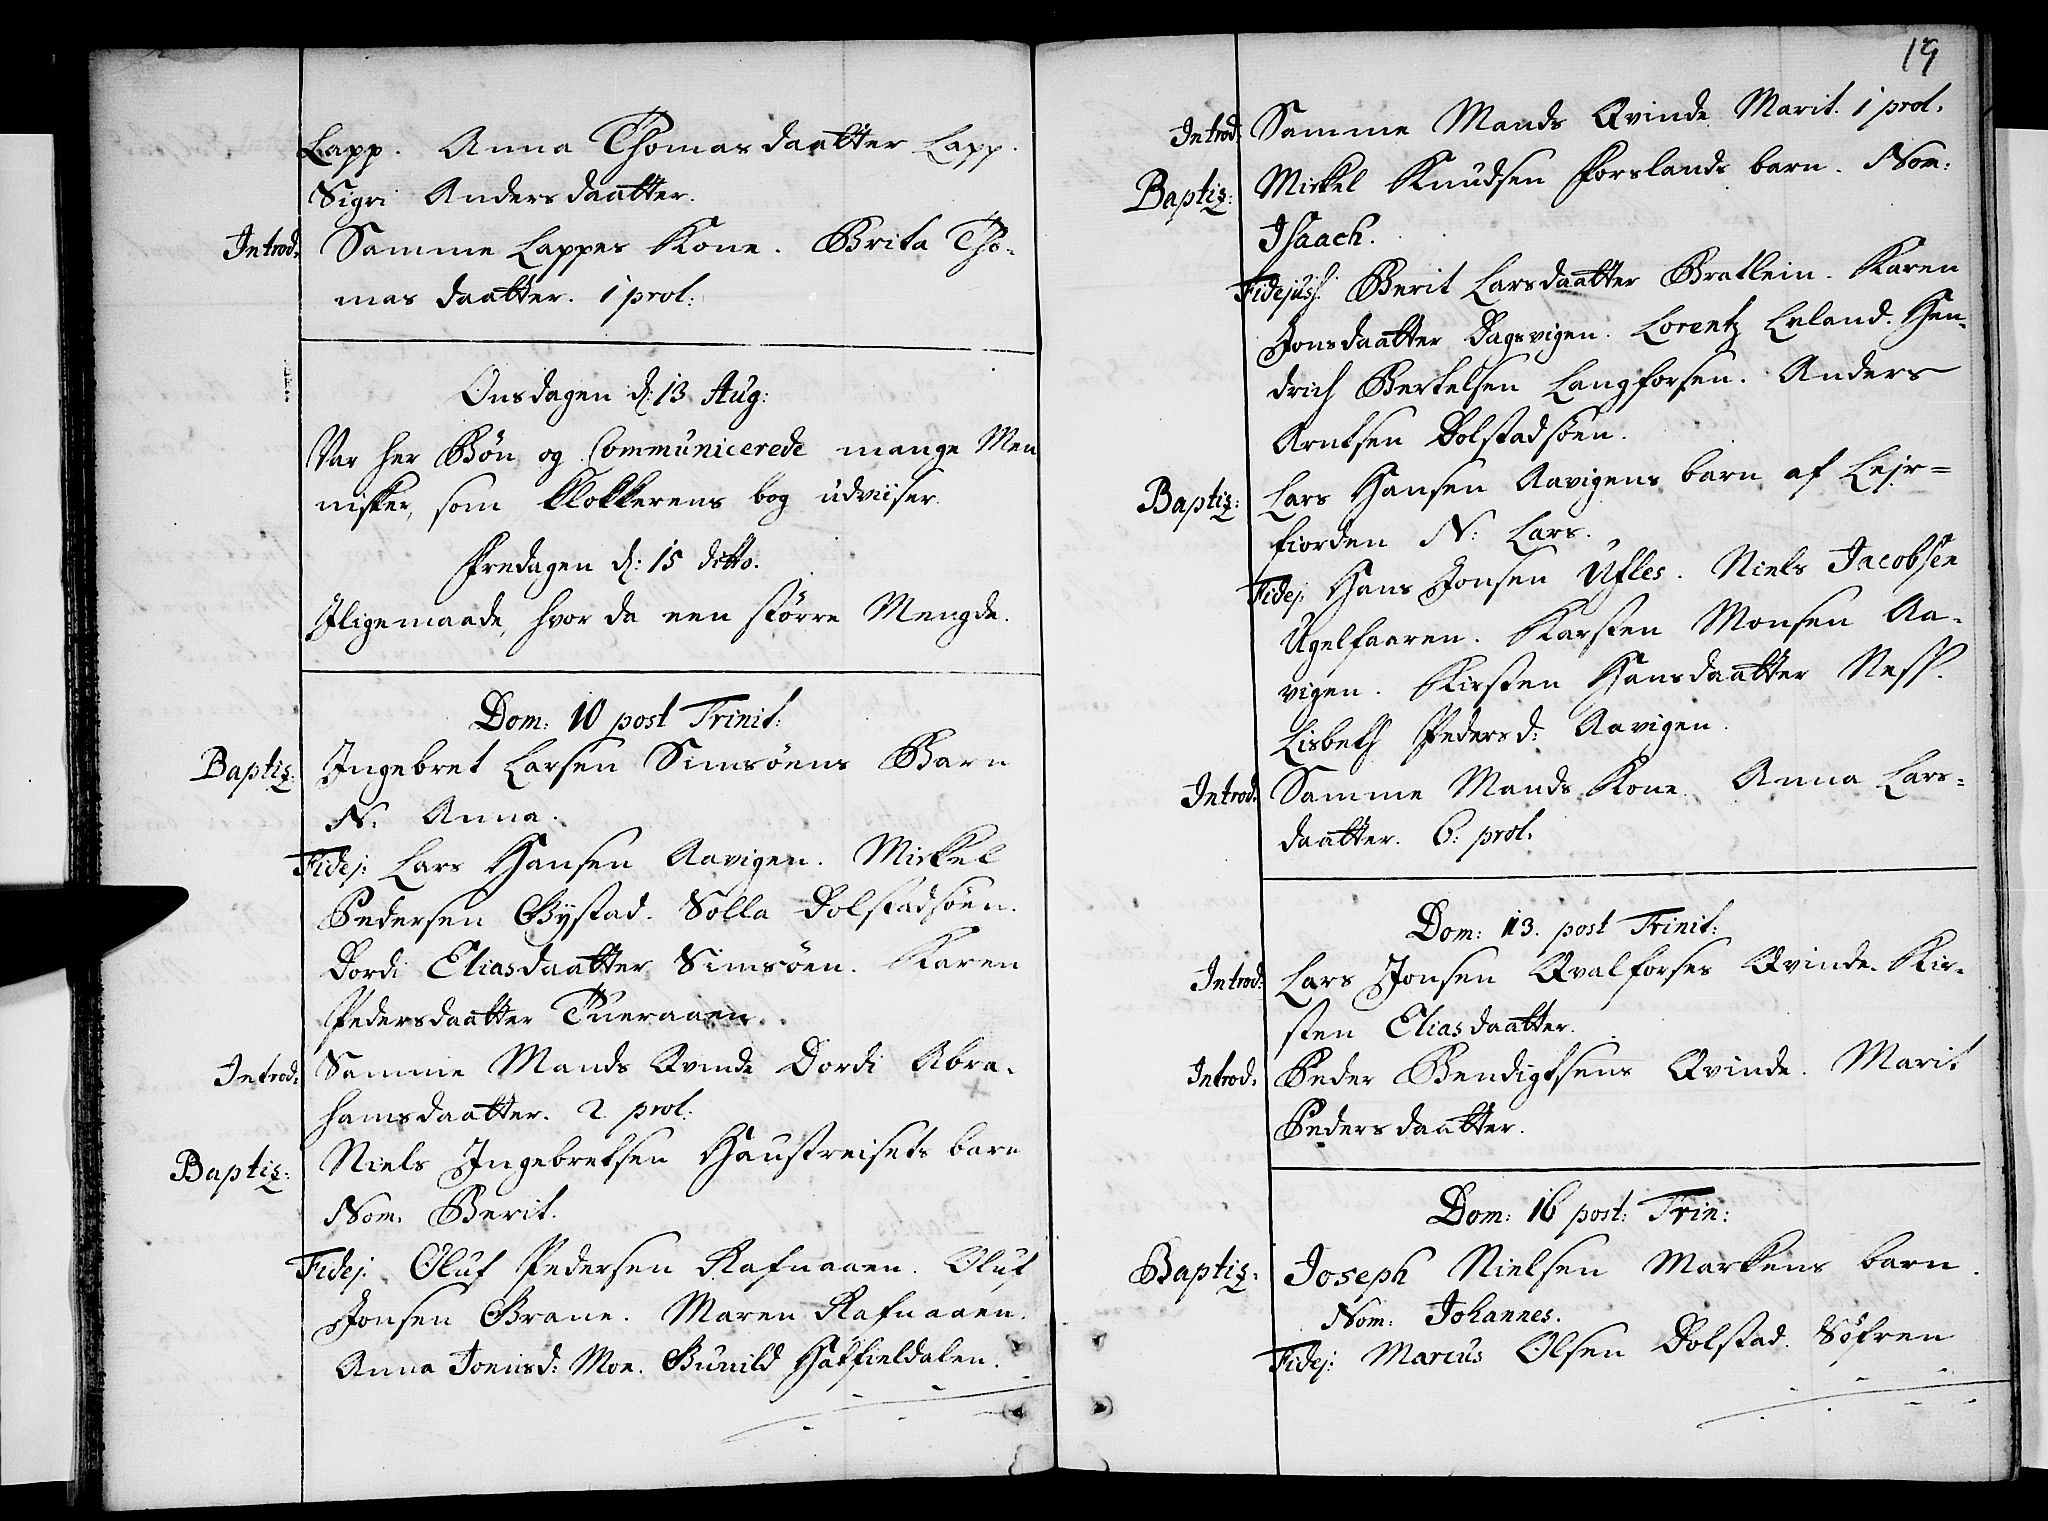 Lapp. Anna Thomasdaatter Lapp.
Sigri Andersdaatter.
Introd. Samme Lappes Kone. Brita Tho-
mas daatter. 1 prol:
Onsdagen d: 13 Aug:
Var her Bön og Communicerede mange Men
nisker, som Klokkerens bog udviiser.
Fredagen d: 15 ditto.
Iligemaade, hvor da een större Mengde.
Dom: 10 post Trinit:
Baptiz: Ingebret Larsen Simsöens Barn
N. Anna.
Fidej: Lars Hansen Aavigen. Mickel
Pedersen Bystad. Solla Dolstadsöen.
Dordi Eliasdaatter Simsöen. Karen
Pedersdaatter Tueraaen.
Introd. Samme Mands Qvinde Dordi Abra-
hamsdaatter. 2 prol.
Baptiz: Niels Ingebretsen Haustreisets barn
Nom. Berit.
Fidej: Oluf Pedersen Rafnaaen. Oluf
Jonsen Grane. Maren Rafnaaen.
Anna Joenisd: Moe. Gunild Hatfieldalen.
19
Introd. Samme Mands Qvinde Marit. 1 prol.
Baptiz: Mickel Knudsen Forslands barn. Nom:
Isaach.
Fidejuss: Berit Larsdaatter Bratlein. Karen
Jonsdaatter Dagsvigen. Lorentz Erland. Hen-
drich Bertelsen Langforsen. Anders
Arntsen Dolstadsöen.
Baptiz: Lars Hansen Aavigens barn af Lejr=
fiorden N: Lars.
Fidej. Hans Jonsen Ufles. Niels Jacobsen
Ugelfaaren. Karsten Monsen Aa-
vigen. Kirsten Hansdaatter Ness.
Lisbeth Pedersd: Aavigen.
Introd. Samme Mands Kone Anna Lars=
daatter. 6: prol.
Dom: 13. post Trinit:
Introd: Lars Jonsen Qvalforses Qvinde. Kir-
sten Eliasdaatter.
Introd. Peder Bendigtsens Qvinde. Marit
Pedersdaatter.
Dom: 16 post: Trin:
Baptiz: Joseph Nielsen Markens barn.
Nom: Johannes.
Fidej: Marcus Olsen Dolstad. Söfren